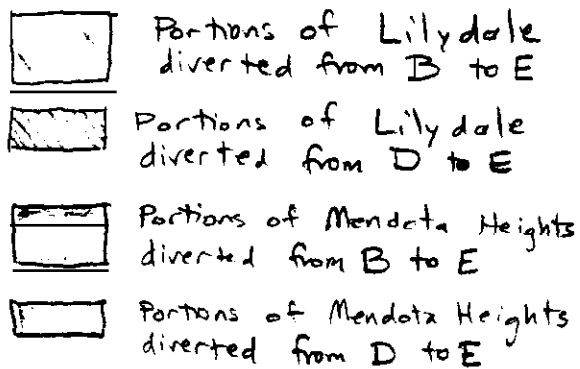 Portions of Lilydale
diverted from B to E
Portions of Lilydale
diverted from D to E
Portions of Mendota Heights
diverted from B to E
Portions of Mendota Heights
diverted from D to E